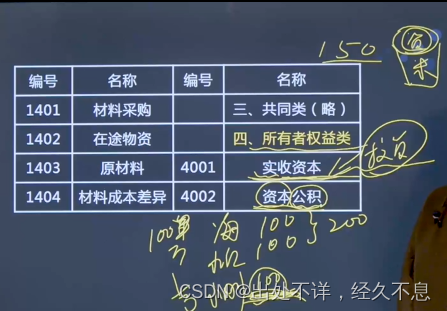 150
编号 名称 编号 名称
1401 材料采购 三、共同类（略）
1402 在途物资 四、所有者权益类
1403 原材料 4001 实收资本 投资
1404 材料成本差异 4002 资本公积
100 100 200
100
100
CSDN @出处不详，经久不息